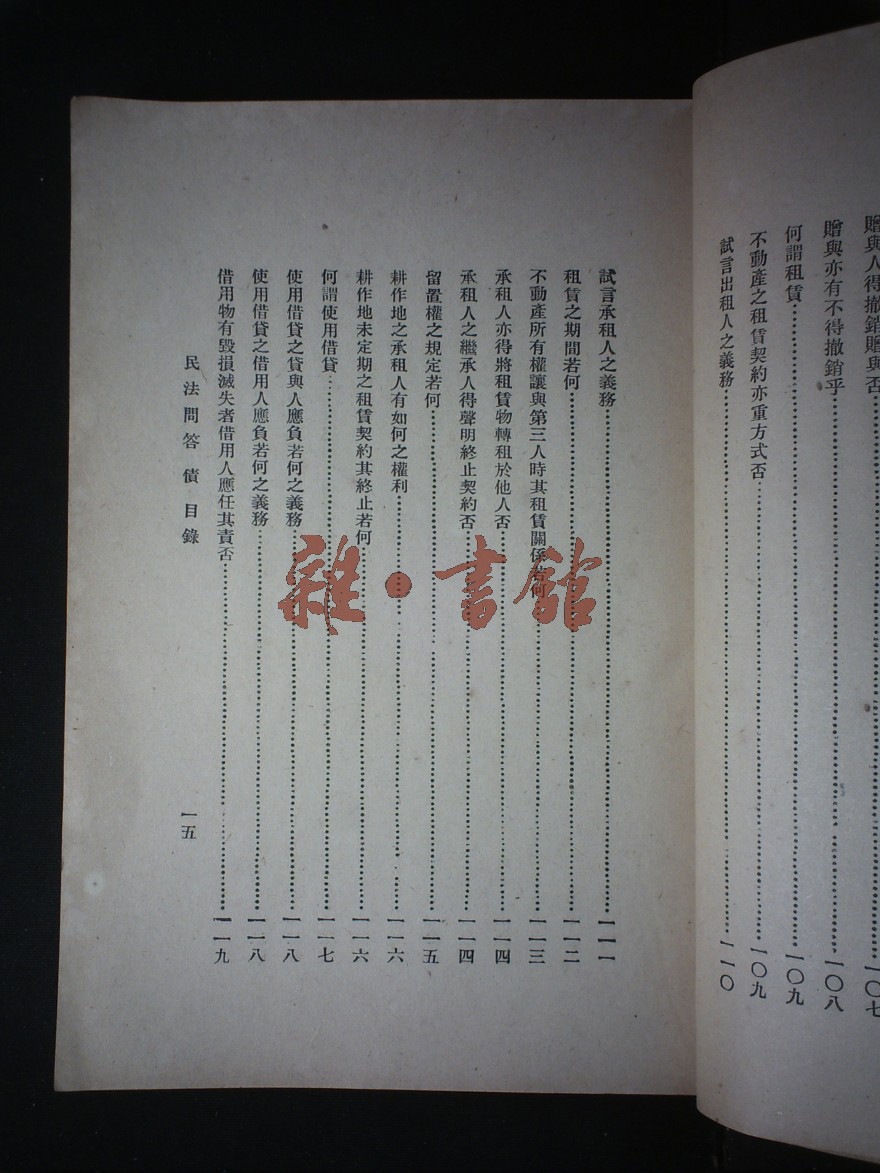 贈與人得撤銷贈與否……一〇七
贈與亦有不得撤銷乎……一〇八
何謂租賃……一〇九
不動產之租賃契約亦重方式否……一〇九
試言出租人之義務……一一〇
試言承租人之義務……一一一
租賃之期間若何……一一二
不動產所有權讓與第三人時其租賃關係若何……一一三
承租人亦得將租賃物轉租於他人否……一一四
承租人之繼承人得聲明終止契約否……一一四
留置權之規定若何……一一五
耕作地之承租人有如何之權利……一一六
耕作地未定期之租賃契約其終止若何……一一六
何謂使用借貸……一一七
使用借貸之貸與人應負若何之義務……一一八
使用借貸之借用人應負若何之義務……一一八
借用物有毀損滅失者借用人應任其責否……一一九
民法問答 債 目錄
一五
雜·書館